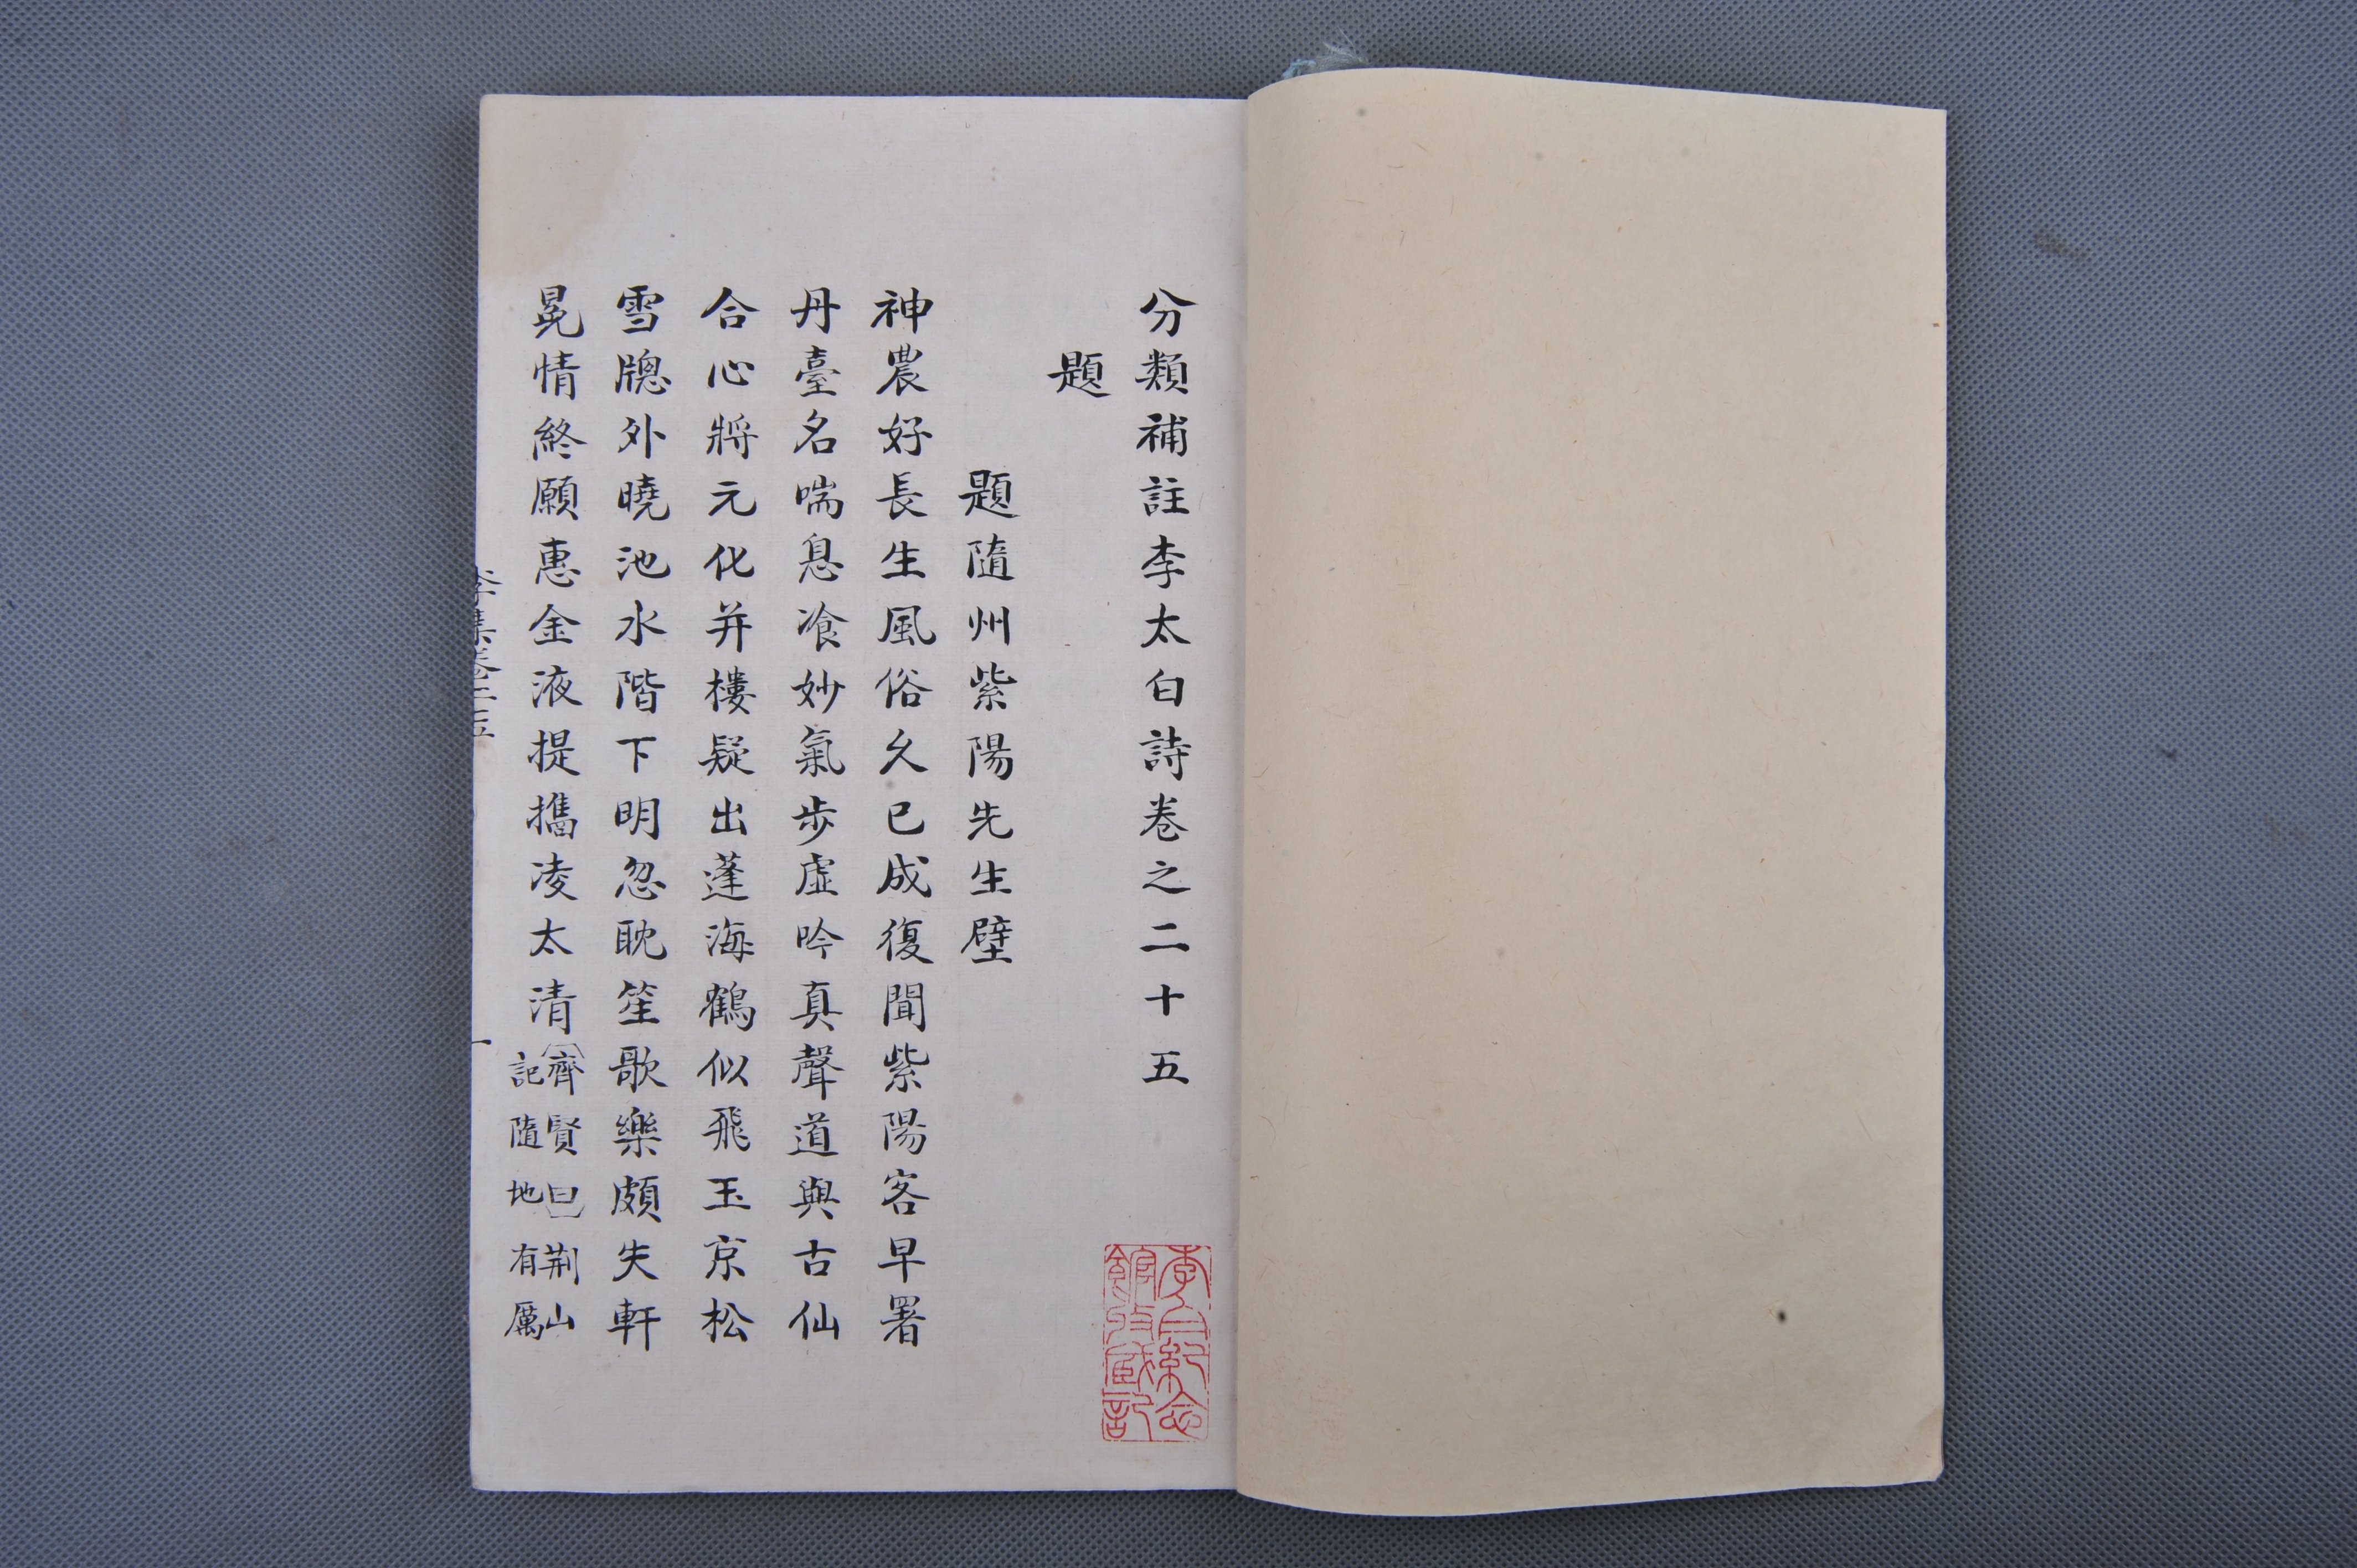 分類補註李太白詩卷之二十五
題
題隨州紫陽先生壁
神農好長生風俗久已成復聞紫陽客早署
丹臺名喘息飡妙氣步虛吟真聲道與古仙
合心將元化并樓疑出蓬海鶴似飛玉京松
雪牕外曉池水階下明忽耽笙歌樂頗失軒
冕情終願惠金液提攜凌太清
齊賢曰荆山
記隨地有厲
李集卷二五
一
李白紀念
館收藏記